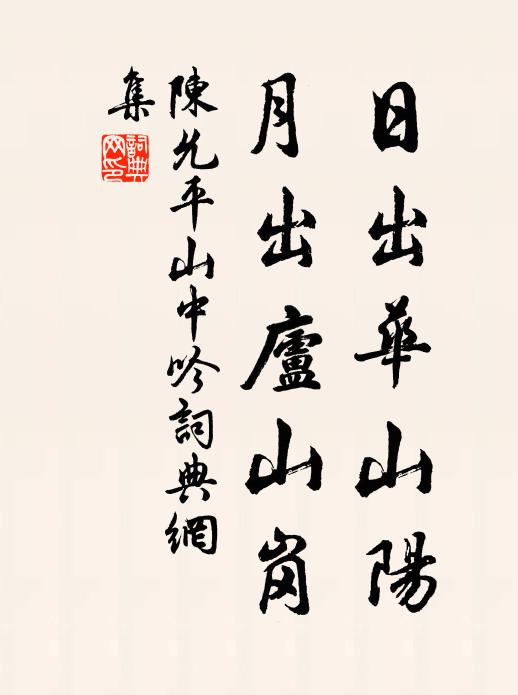 日出華山陽
月出廬山岗
陳允平山中吟詞典網
集
詞典網印